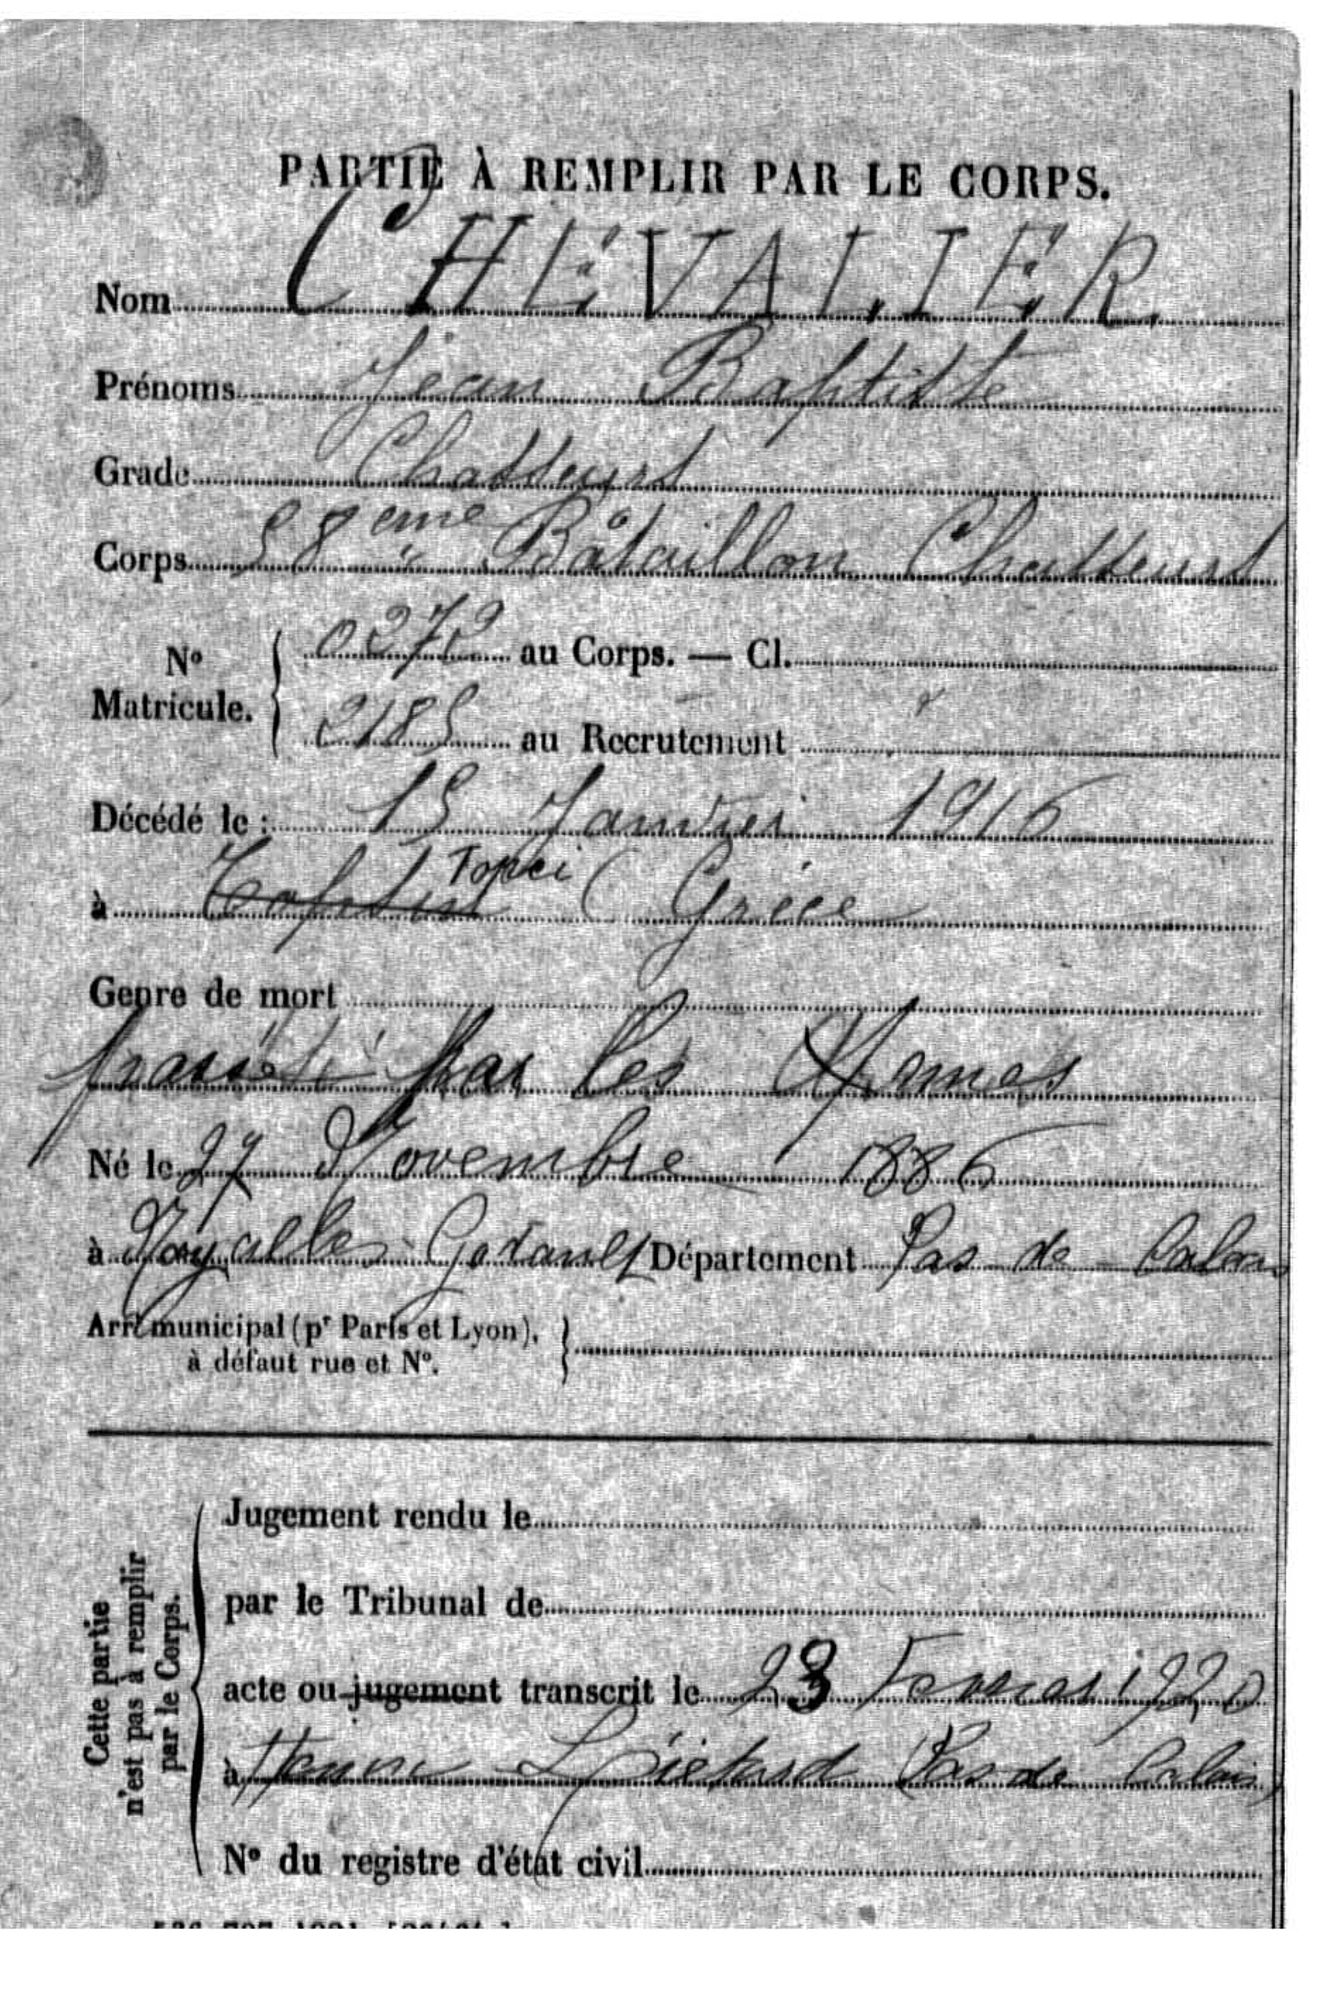 PARTIE À REMPLIR PAR LE CORPS.
Nom CHEVALIER.
Prénoms Jean Baptiste
Grade Chasseurs
Corps 58ème Bataillon Chasseurs
N° Matricule. 0272 au Corps. — Cl.
2185 au Recrutement
Décédé le : 15 Janvier 1916
à Topci ( Grèce
Genre de mort
par les Armes
Né le 27 Novembre 1886
à Noyelles-Godault Département Pas de Calais
Arrt municipal (pr Paris et Lyon),
à défaut rue et N°.
Cette partie
n'est pas à remplir
par le Corps.
Jugement rendu le
par le Tribunal de
acte ou jugement transcrit le 23 1920
à Liétard (Pas de Calais)
N° du registre d'état civil